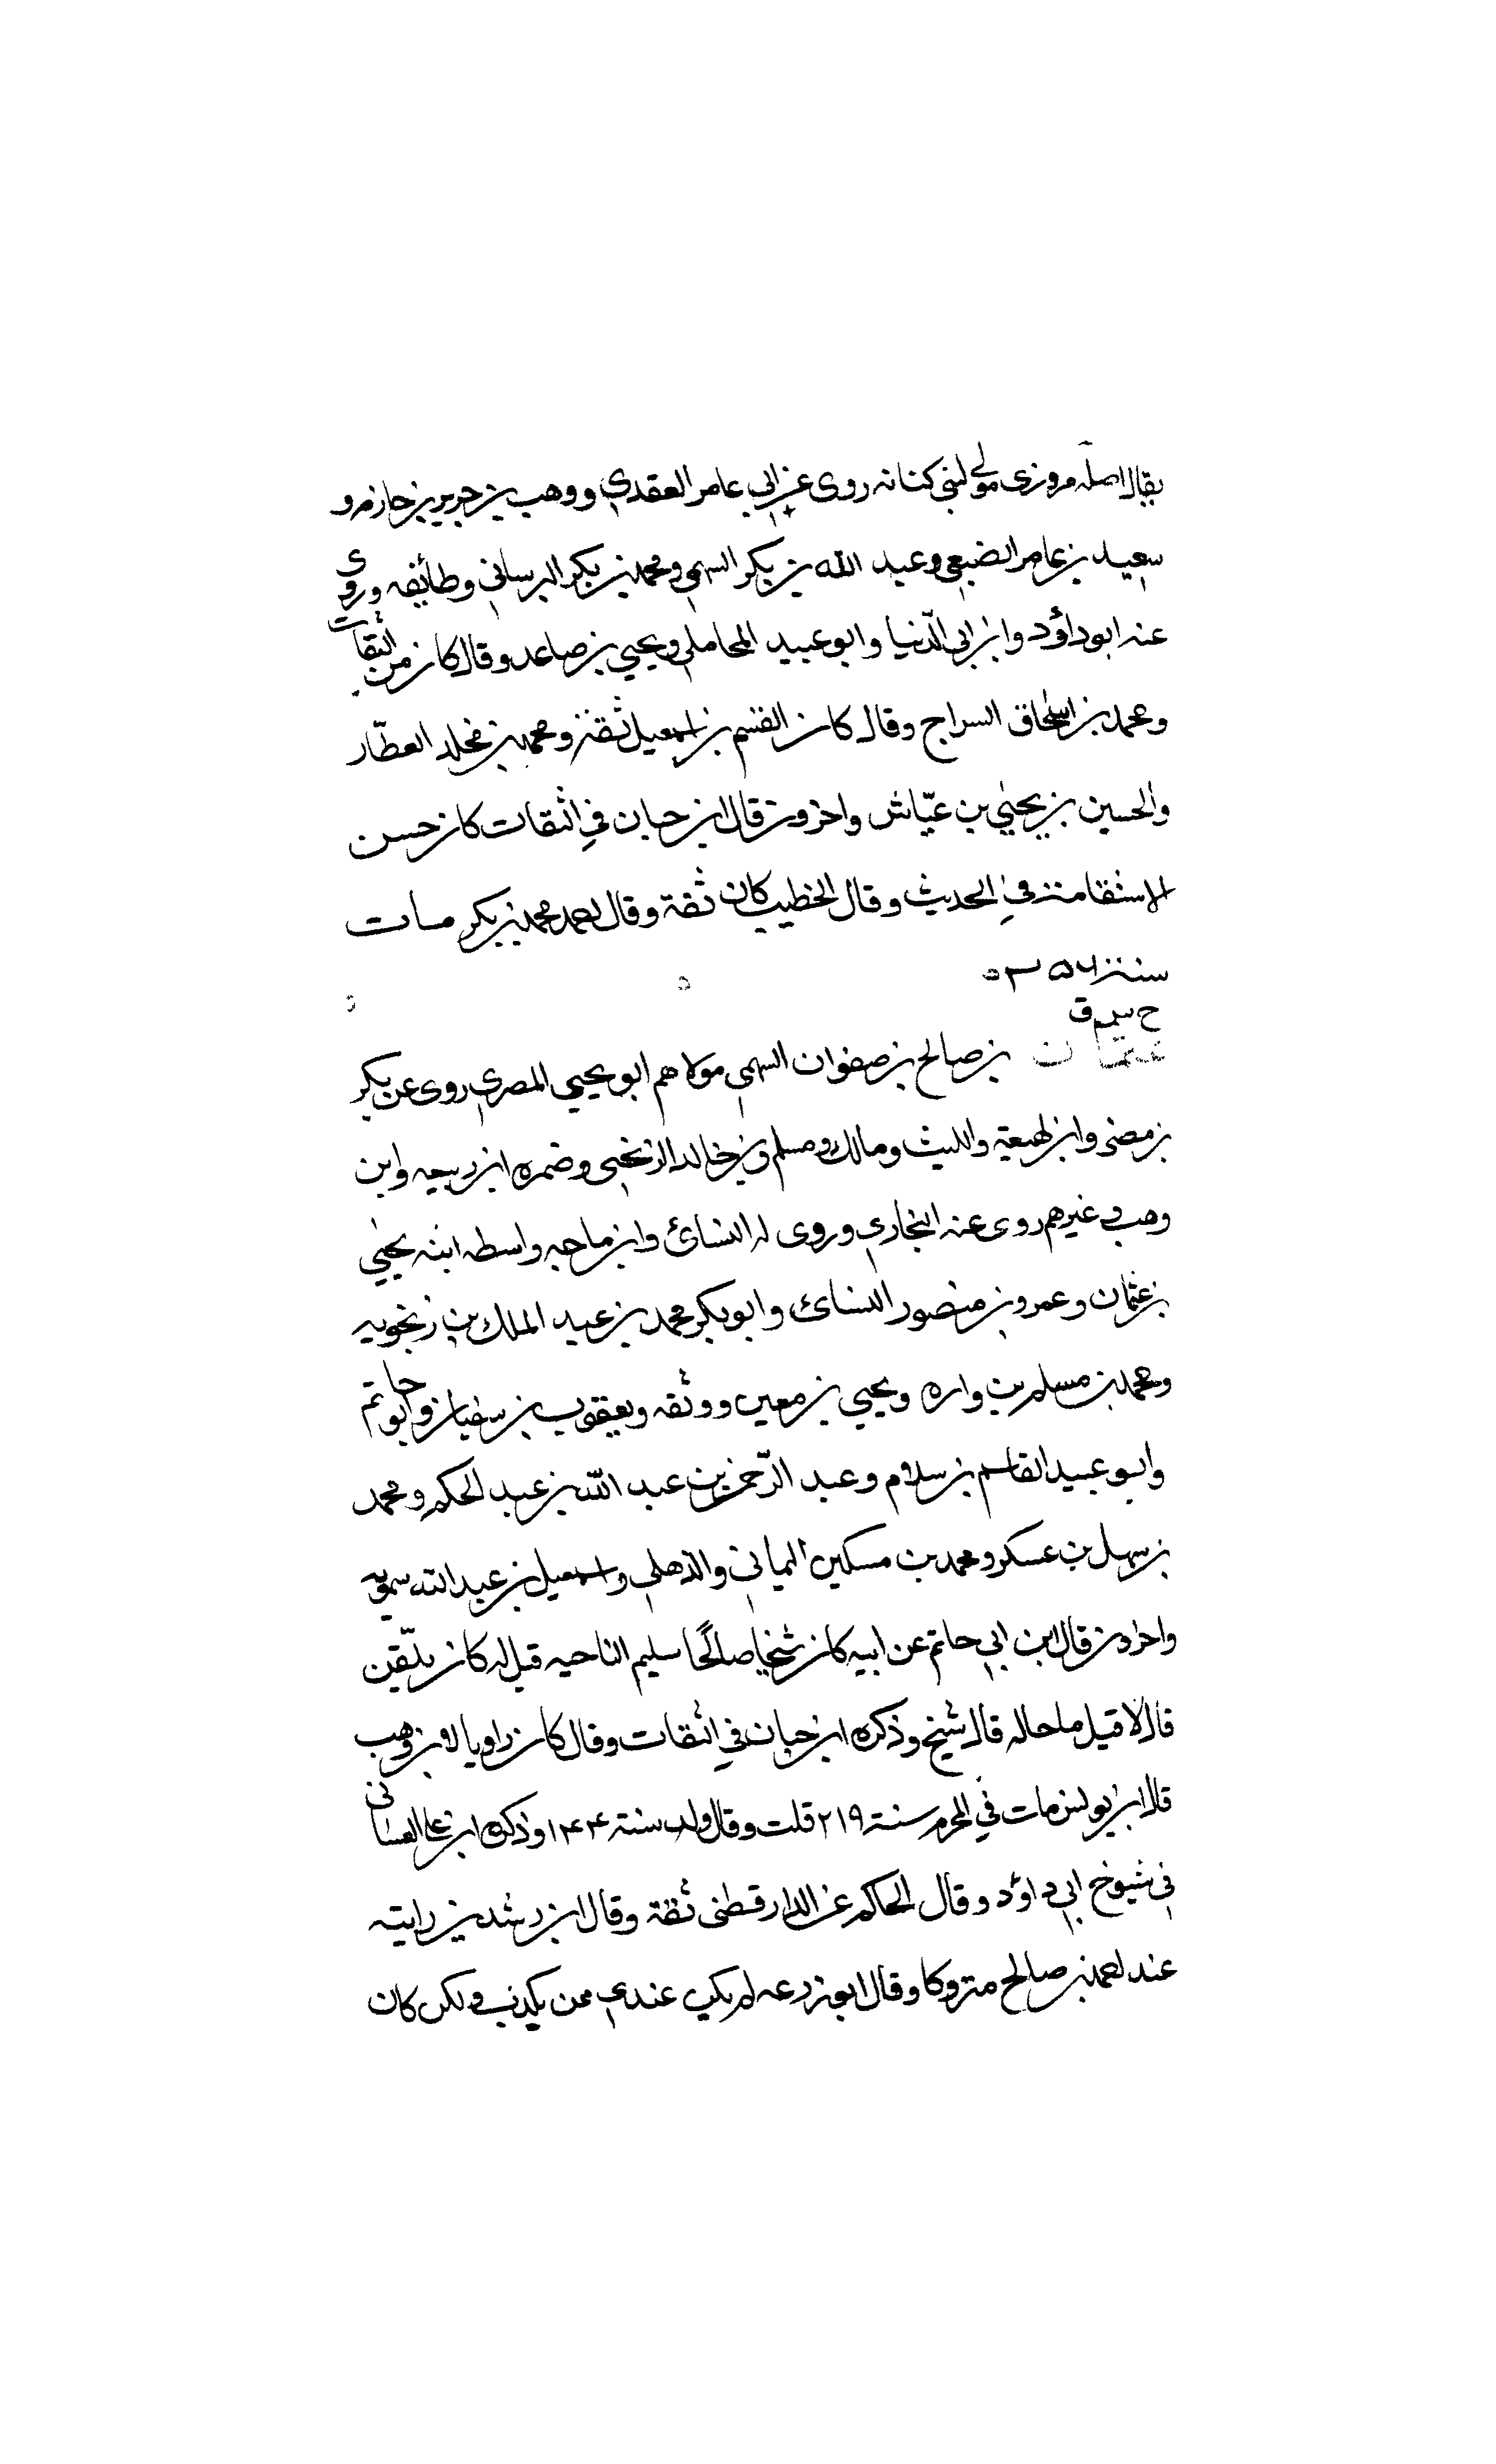 يقال اصله مروزى مولى لبنى كنانه روى عن ابي عامر العقدي ووهب بن جرير بن حازم و
سعيد بن عامر الضبعي وعبد الله بن بكر السهمي ومحمد بن بكر البرساني وطائفه وروى
عنه ابو داؤد وابن ابي الدّنيا وابو عبيد المحاملي ويحيي بن صاعد وقال كان من الثقات
ومحمد بن اسحاق السراج وقال كان القسم بن اسمعيل ثقة ومحمد بن مخلد العطّار
والحسين بن يحيي بن عيّاش واخرون قال ابن حبان في الثقات كان حسن
الاستقامة في الحديث وقال الخطيب كان ثقة وقال احمد محمد بن بكر مات
سنة ٢٥٦
خ س ق
عثمان بن صالح بن صفوان السهمي مولاهم ابو يحيي المصري روى عن بكر
بن مضى وابن لهيعة والليث ومالك ومسلم بن خالد الزنجى وضمره ابن ربيعه وابن
وهب وغيرهم روى عنه البخاري وروى له النسائ وابن ماجه واسطه ابنه يحيي
بن عثمان وعمرو بن منصور النسائ وابو بكر محمد بن عبد الملك بن زنجويه
ومحمد بن مسلم بن واره ويحيي بن معين ووثقه ويعقوب بن سفيان وابو حاتم
وابو عبيد القاسم بن سلام وعبد الرّحمن بن عبد الله بن عبد الحكم ومحمد
بن سهل بن عسكر ومحمد بن مسكين اليماني والذهلي واسمعيل بن عبد الله سمويه
واخرون قال ابن ابي حاتم عن ابيه كان شيخا صالحًا سليم الناحيه قيل له كان يلّقن
قال لا قيل ما حاله قال شيخ وذكره ابن حبان في الثقات وقال كان راويا لابن وهب
قال ابن يونس مات في المحرم سنة ٢١٩ قلت وقال ولد سنة ١٤٤ وذكره ابن على الغسانى
في شيوخ ابي داؤد وقال الحاكم عن الدارقطنى ثقة وقال ابن رشدين رايته
عند احمد بن صالح متروكا وقال ابو زرعه لم يكن عندي ممن يكذب ولكن كان